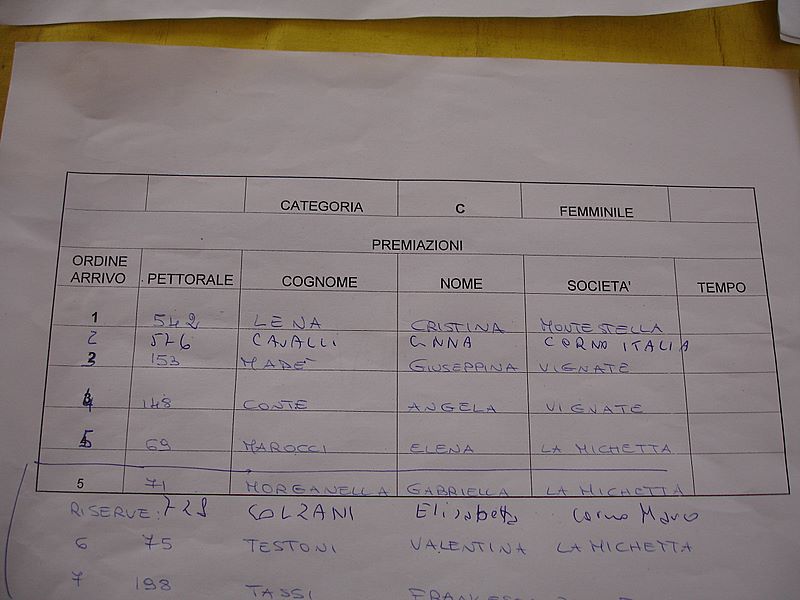 CATEGORIA C FEMMINILE
PREMIAZIONI
ORDINE ARRIVO PETTORALE COGNOME NOME SOCIETA' TEMPO
1 542 LENA CRISTINA MONTESTELLA
2 576 CAVALLI ANNA CORNO ITALIA
3 153 MADE' GIUSEPPINA VIGNATE
4 148 CONTE ANGELA VIGNATE
5 69 MAROCCI ELENA LA MICHETTA
5 71 MORGANELLA GABRIELLA LA MICHETTA
RISERVE: 728 COLZANI Elisabetta Corno Marco
6 75 TESTONI VALENTINA LA MICHETTA
7 198 TASSI